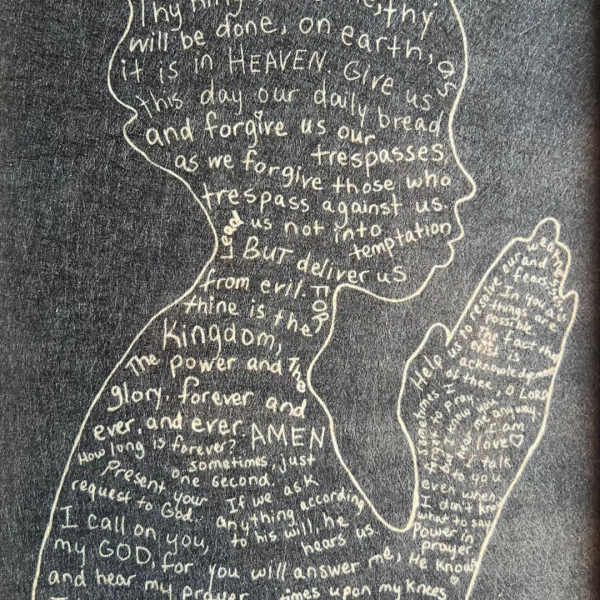 Thy
thy
will be done, on earth, as
it is in HEAVEN. Give us
this day our daily bread
and forgive us our
trespasses
as we forgive those who
trespass against us.
Lead us not into
temptation
BUT deliver us
from evil. FOR
thine is the
Kingdom,
The power and The
glory. forever and
ever. and ever. AMEN
How long is forever?
sometimes, just
one second.
Present your
request to God.
If we ask
anything according
to his will, he
hears us.
I call on you,
my GOD, for you will answer me, He knows
and hear my prayer
times upon my knees
our and
fears
In you, all
things are
possible
The fact that
is
acknowledge
of thee, O LORD
Help us to resolve
sometimes I
forget to pray
but I know you
hear me anyway
I am
love ♡
I talk
to you
even when
I don't know
what to say
Power in
prayer